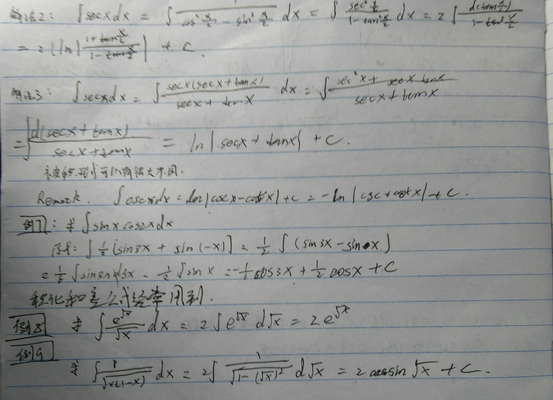 解法2: ∫secxdx = ∫ 1/(cos²x/2 - sin²x/2) dx = ∫ (sec²x/2)/(1-tan²x/2) dx = 2∫ d(tan x/2)/(1-tan²x/2)
= 2(ln| (1+tan x/2)/(1-tan x/2) | + C
解法3: ∫secxdx = ∫ secx(secx+tanx)/(secx+tanx) dx = ∫ (sec²x + secx tanx)/(secx+tanx)
= ∫ d(secx+tanx)/(secx+tanx) = ln|secx+tanx| + C.
不定积分形式可以有很大不同.
Remark. ∫cscxdx = ln|cscx-cotx|+c = -ln|cscx+cotx|+c.
例7: 求∫sinxcos2xdx
原式: ∫½[sin3x + sin(-x)] = ½∫(sin3x-sinx)
= ⅙∫sin3xd3x - ½∫sinx = -⅙cos3x + ½cosx + C
积化和差公式经常用到.
例8 求 ∫ e^√x/√x dx = 2∫e^√x d√x = 2e^√x
例9
求 ∫ 1/√(x(1-x)) dx = 2∫ 1/√(1-(√x)²) d√x = 2arcsin√x + C.